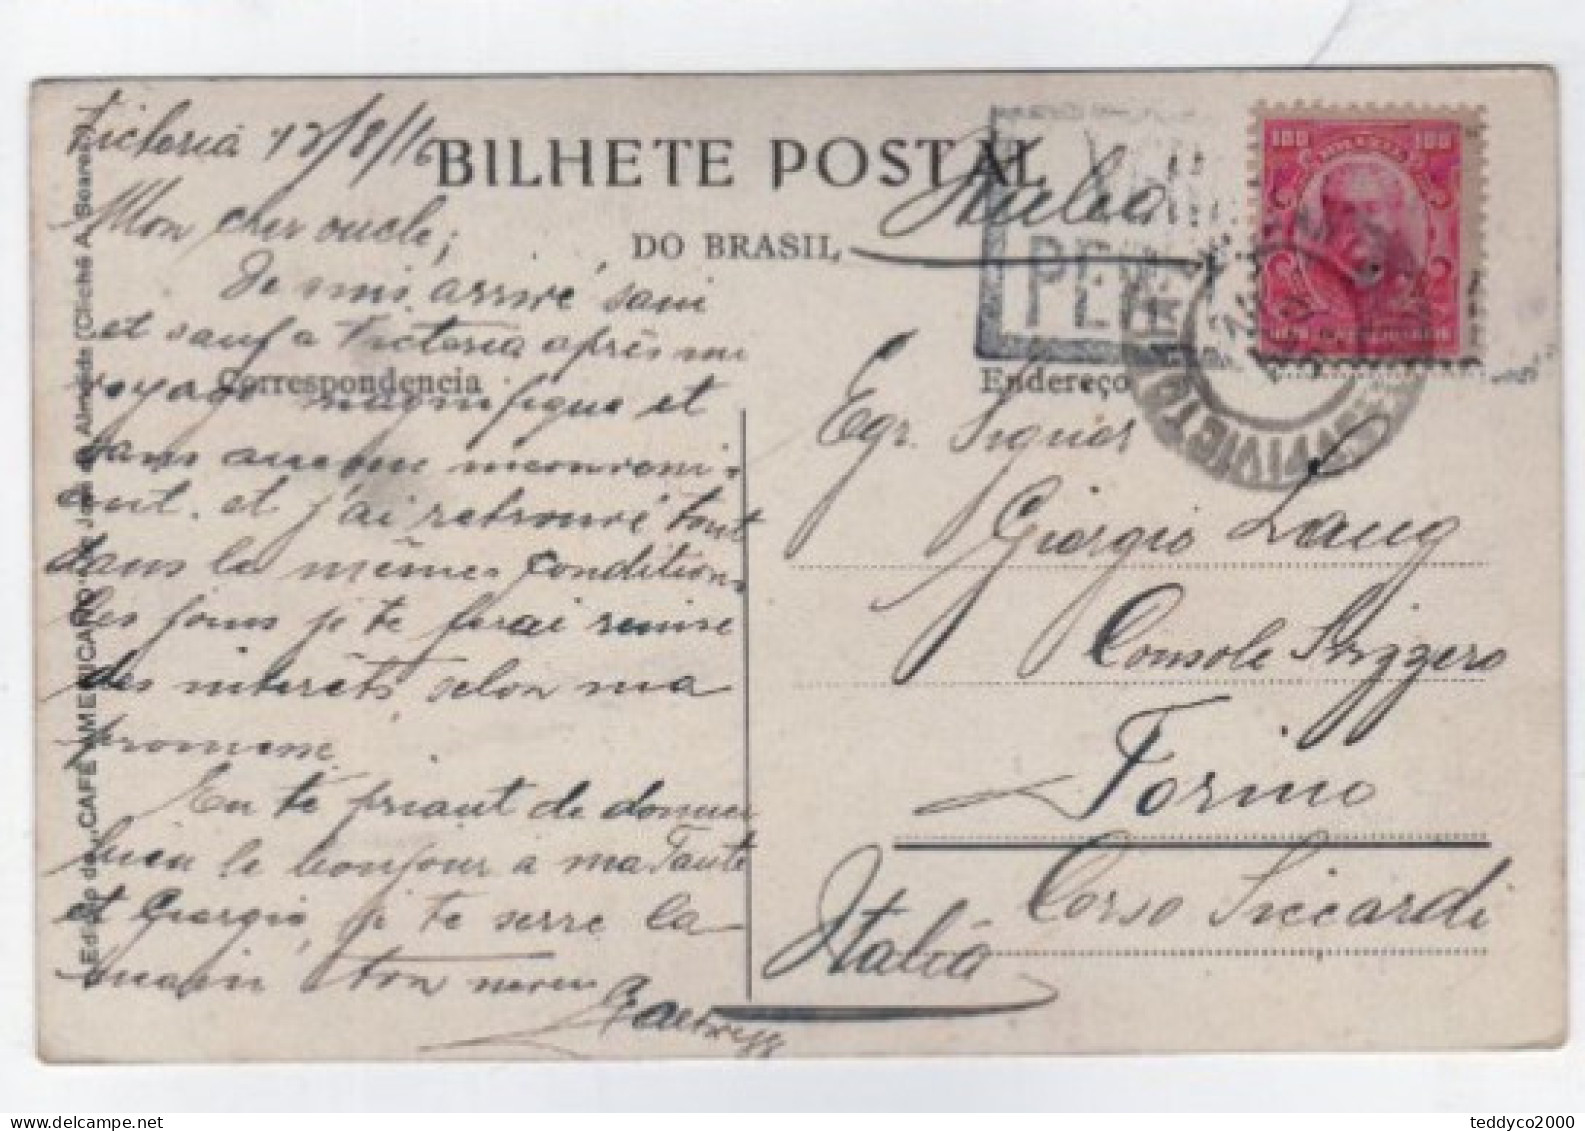 Victoria 12/8/16
BILHETE POSTAL
DO BRASIL
Correspondencia
Endereço
Edição do „CAFÉ AMERICANO" de José de Almeida (Cliché A. Soares.)
Mon cher oncle;
Je suis arrivé sain
et sauf a Victoria après un
voyage magnifique et
sans aucune inconveni-
ent. et j'ai retrouvé tout
dans le mêmes conditions
les jours je te ferai remise
des intérêts, selon ma
promesse.
En te priant de donner
bien le bonjour à ma Tante
et Giorgio, je te serre la
main ton neveu
100 BRAZIL 100
Italia
PE
Egr. Signor
Giorgio Laug
Console Svizzero
Torino
Corso Siccardi
Italia
teddyco2000